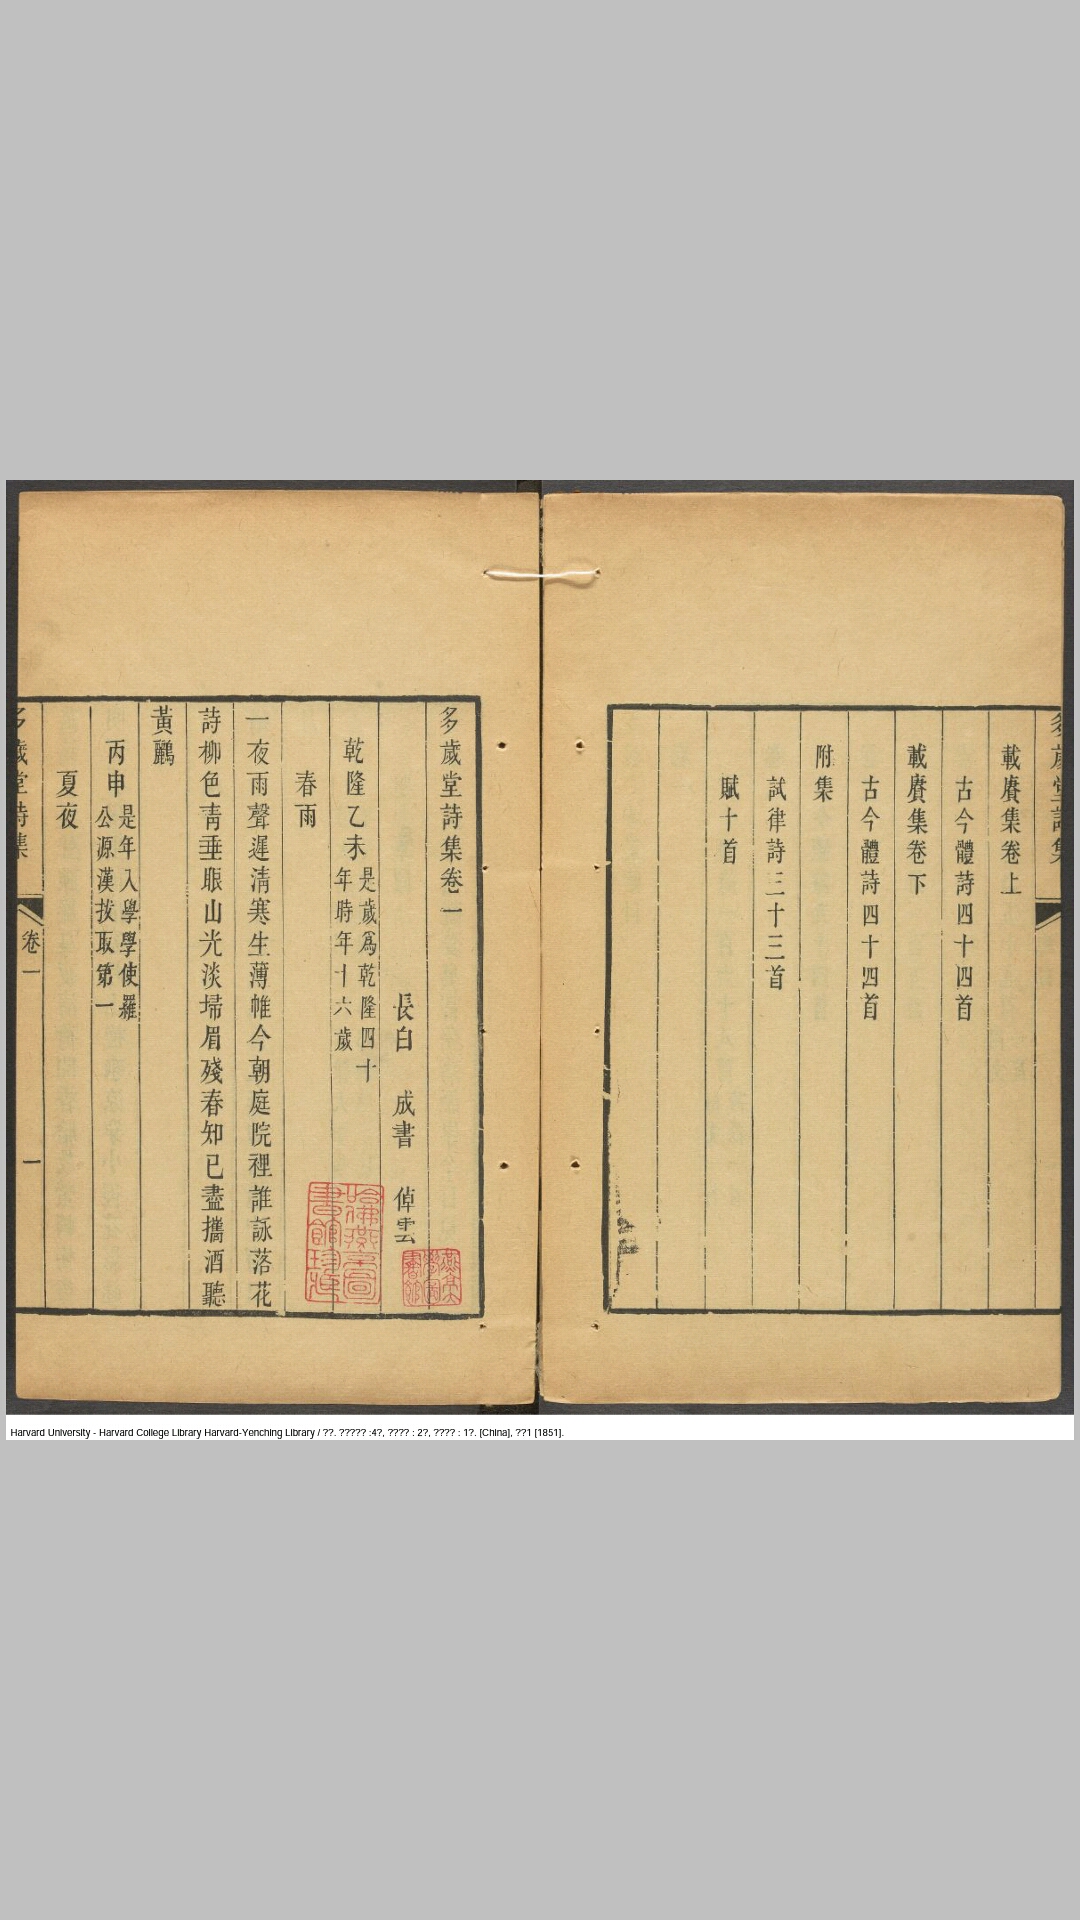 載賡集卷上
古今體詩四十四首
載賡集卷下
古今體詩四十四首
附集
試律詩三十三首
賦十首
多歲堂詩集卷一
長白 成書 倬雲
乾隆乙未
是歲爲乾隆四十
年時年十六歲
春雨
一夜雨聲遲清寒生薄帷今朝庭院裡誰詠落花
詩柳色靑垂眼山光淡埽眉殘春知已盡攜酒聽
黃鸝
丙申
是年入學學使羅
公源漢拔取第一
夏夜
多歲堂詩集
卷一
一
哈佛燕京圖書館珍藏
Harvard University - Harvard College Library Harvard-Yenching Library / ??. ????? :4?, ???? : 2?, ???? : 1?. [China], ??1 [1851].